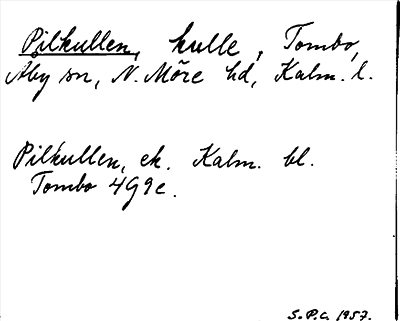 Pilkullen, kulle, Tombo,
Åby sn, N. Möre hd, Kalm. l.
Pilkullen, ek. Kalm. bl.
Tombo 4G9e.
S.P.C. 1957.